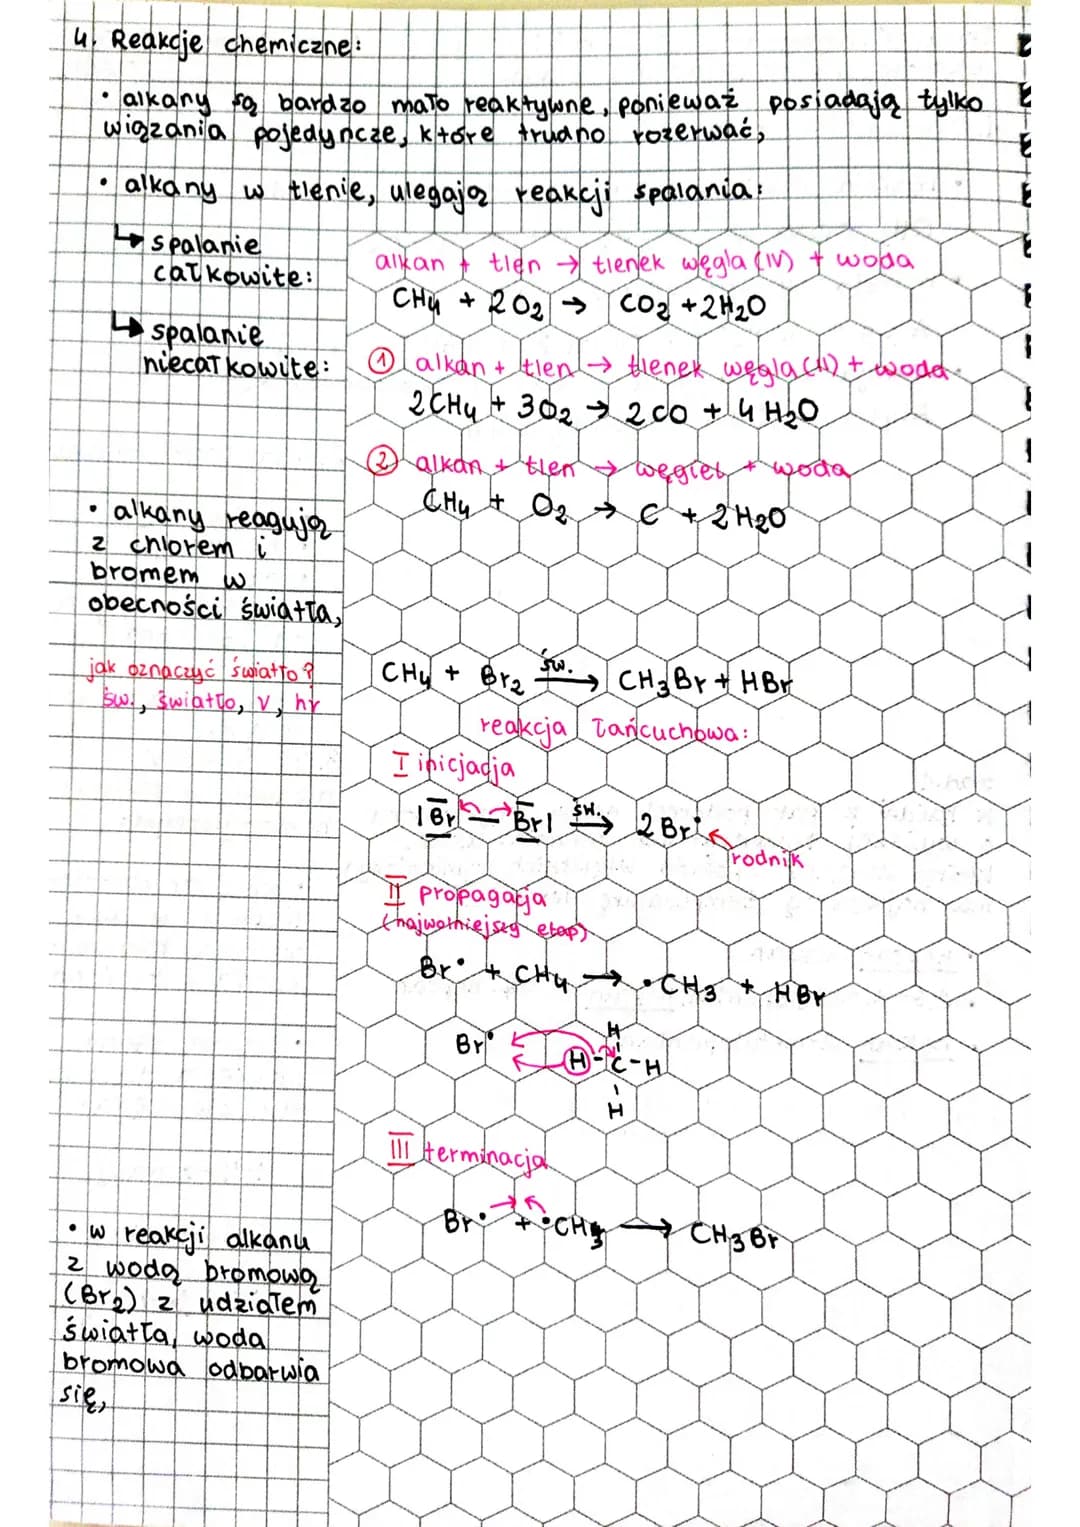 4. Reakcje chemiczne:
• alkany są bardzo mało reaktywne, ponieważ posiadają tylko
wiązania pojedyncze, które trudno rozerwać,
• alkany w tlenie, ulegają reakcji spalania:
↳ spalanie
całkowite:
alkan + tlen → tlenek węgla (IV) + woda
CH4 + 2O2 → CO2 + 2H2O
↳ spalanie
niecałkowite:
① alkan + tlen → tlenek węgla (II) + woda
2CH4 + 3O2 → 2CO + 4H2O
② alkan + tlen → węgiel + woda
CH4 + O2 → C + 2H2O
• alkany reagują
z chlorem i
bromem w
obecności światła,
jak oznaczyć światło?
św., światło, ν, hν
CH4 + Br2 św. → CH3Br + HBr
reakcja łańcuchowa:
I inicjacja
|Br — Br| św. → 2Br•
rodnik
II propagacja
(najwolniejszy etap)
Br• + CH4 → •CH3 + HBr
H
Br• H-C-H
H
III terminacja
Br• + •CH3 → CH3Br
• w reakcji alkanu
z wodą bromową
(Br2) z udziałem
światła, woda
bromowa odbarwia
się,